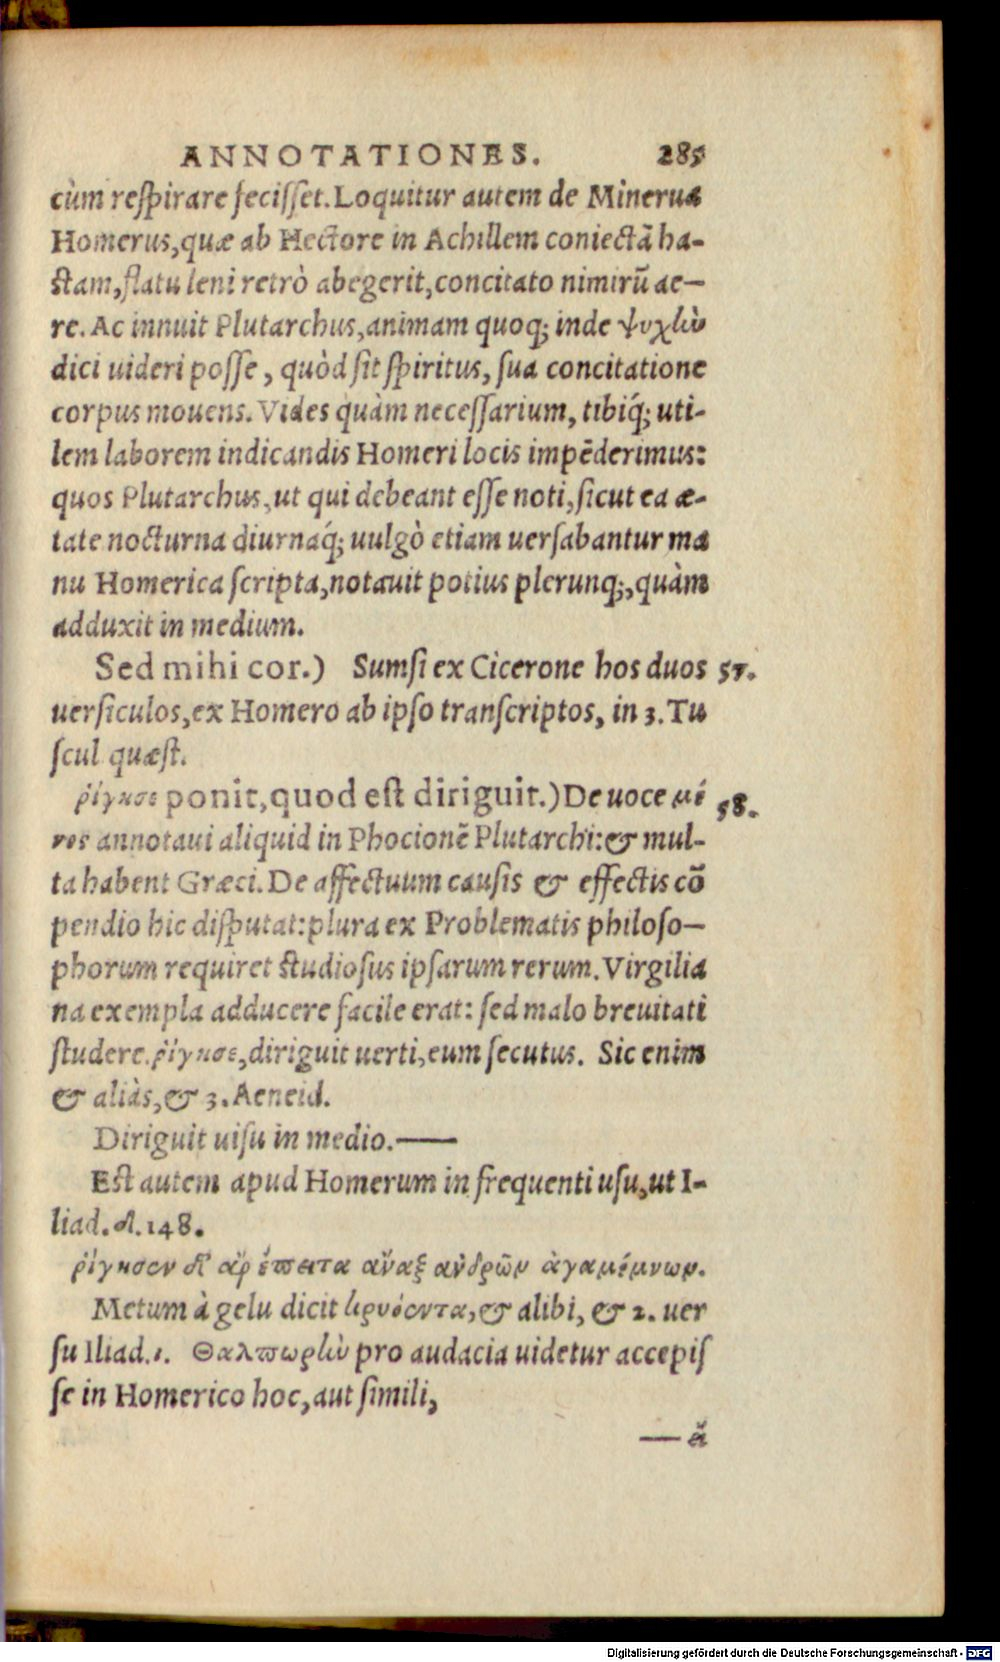 ANNOTATIONES. 285
cùm reſpirare feciſſet. Loquitur autem de Minerua
Homerus, quæ ab Hectore in Achillem coniectā ha-
ſtam, flatu leni retrò abegerit, concitato nimirũ ae—
re. Ac innuit Plutarchus, animam quoq; inde ψυχὼ
dici uideri poſſe, quòd ſit ſpiritus, ſua concitatione
corpus mouens. Vides quàm neceſſarium, tibiq́; uti-
lem laborem indicandis Homeri locis impēderimus:
quos Plutarchus, ut qui debeant eſſe noti, ſicut ea æ-
tate nocturna diurnaq́; uulgò etiam uerſabantur ma
nu Homerica ſcripta, notauit potius plerunq;, quàm
adduxit in medium.
Sed mihi cor.) Sumſi ex Cicerone hos duos 57.
uerſiculos, ex Homero ab ipſo tranſcriptos, in 3. Tu
ſcul quæſt.
ῥίγησε ponit, quod eſt diriguit.) De uoce μέ 58.
νος annotaui aliquid in Phocionē Plutarchi: & mul-
ta habent Græci. De affectuum cauſis & effectis cō
pendio hic diſputat: plura ex Problematis philoſo—
phorum requiret ſtudioſus ipſarum rerum. Virgilia
na exempla adducere facile erat: ſed malo breuitati
ſtudere. ῥίγησε, diriguit uerti, eum ſecutus. Sic enim
& aliàs, & 3. Aeneid.
Diriguit uiſu in medio.——
Eſt autem apud Homerum in frequenti uſu, ut I-
liad. δ. 148.
ῥίγησεν δ' ἄρ ἔπειτα ἄναξ ἀνδρῶν ἀγαμέμνων.
Metum à gelu dicit κρυόεντα, & alibi, & 2. uer
ſu Iliad. ι. Θαλπωρὼ pro audacia uidetur accepiſ
ſe in Homerico hoc, aut ſimili,
—
Digitalisierung gefördert durch die Deutsche Forschungsgemeinschaft - DFG